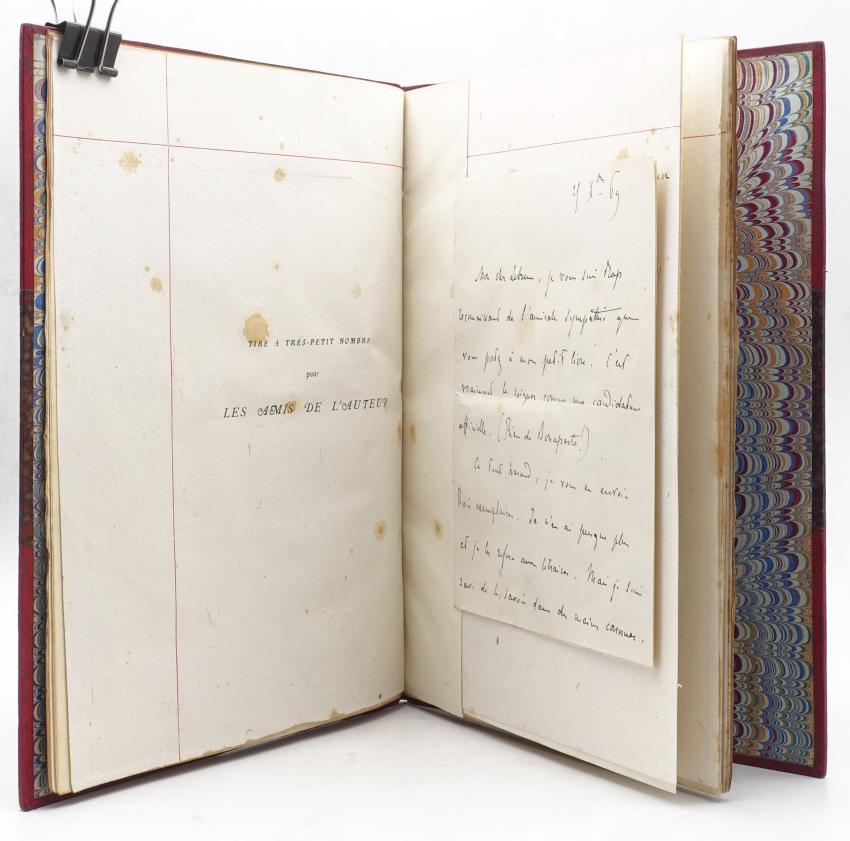 TIRÉ A TRÈS-PETIT NOMBRE
pour
LES AMIS DE L'AUTEUR
Xbre 69
Mon cher Lebrun, je vous suis trop
reconnaissant de l'amicale sympathie que
vous portez à mon petit livre. C'est
vraiment le soigner comme une candidature
officielle. (Rien de Bonaparte!)
A tout hasard, je vous en envoie
trois exemplaires. Je n'en ai presque plus
et je les refuse aux libraires. Mais je suis
ravi de les savoir dans des mains connues.